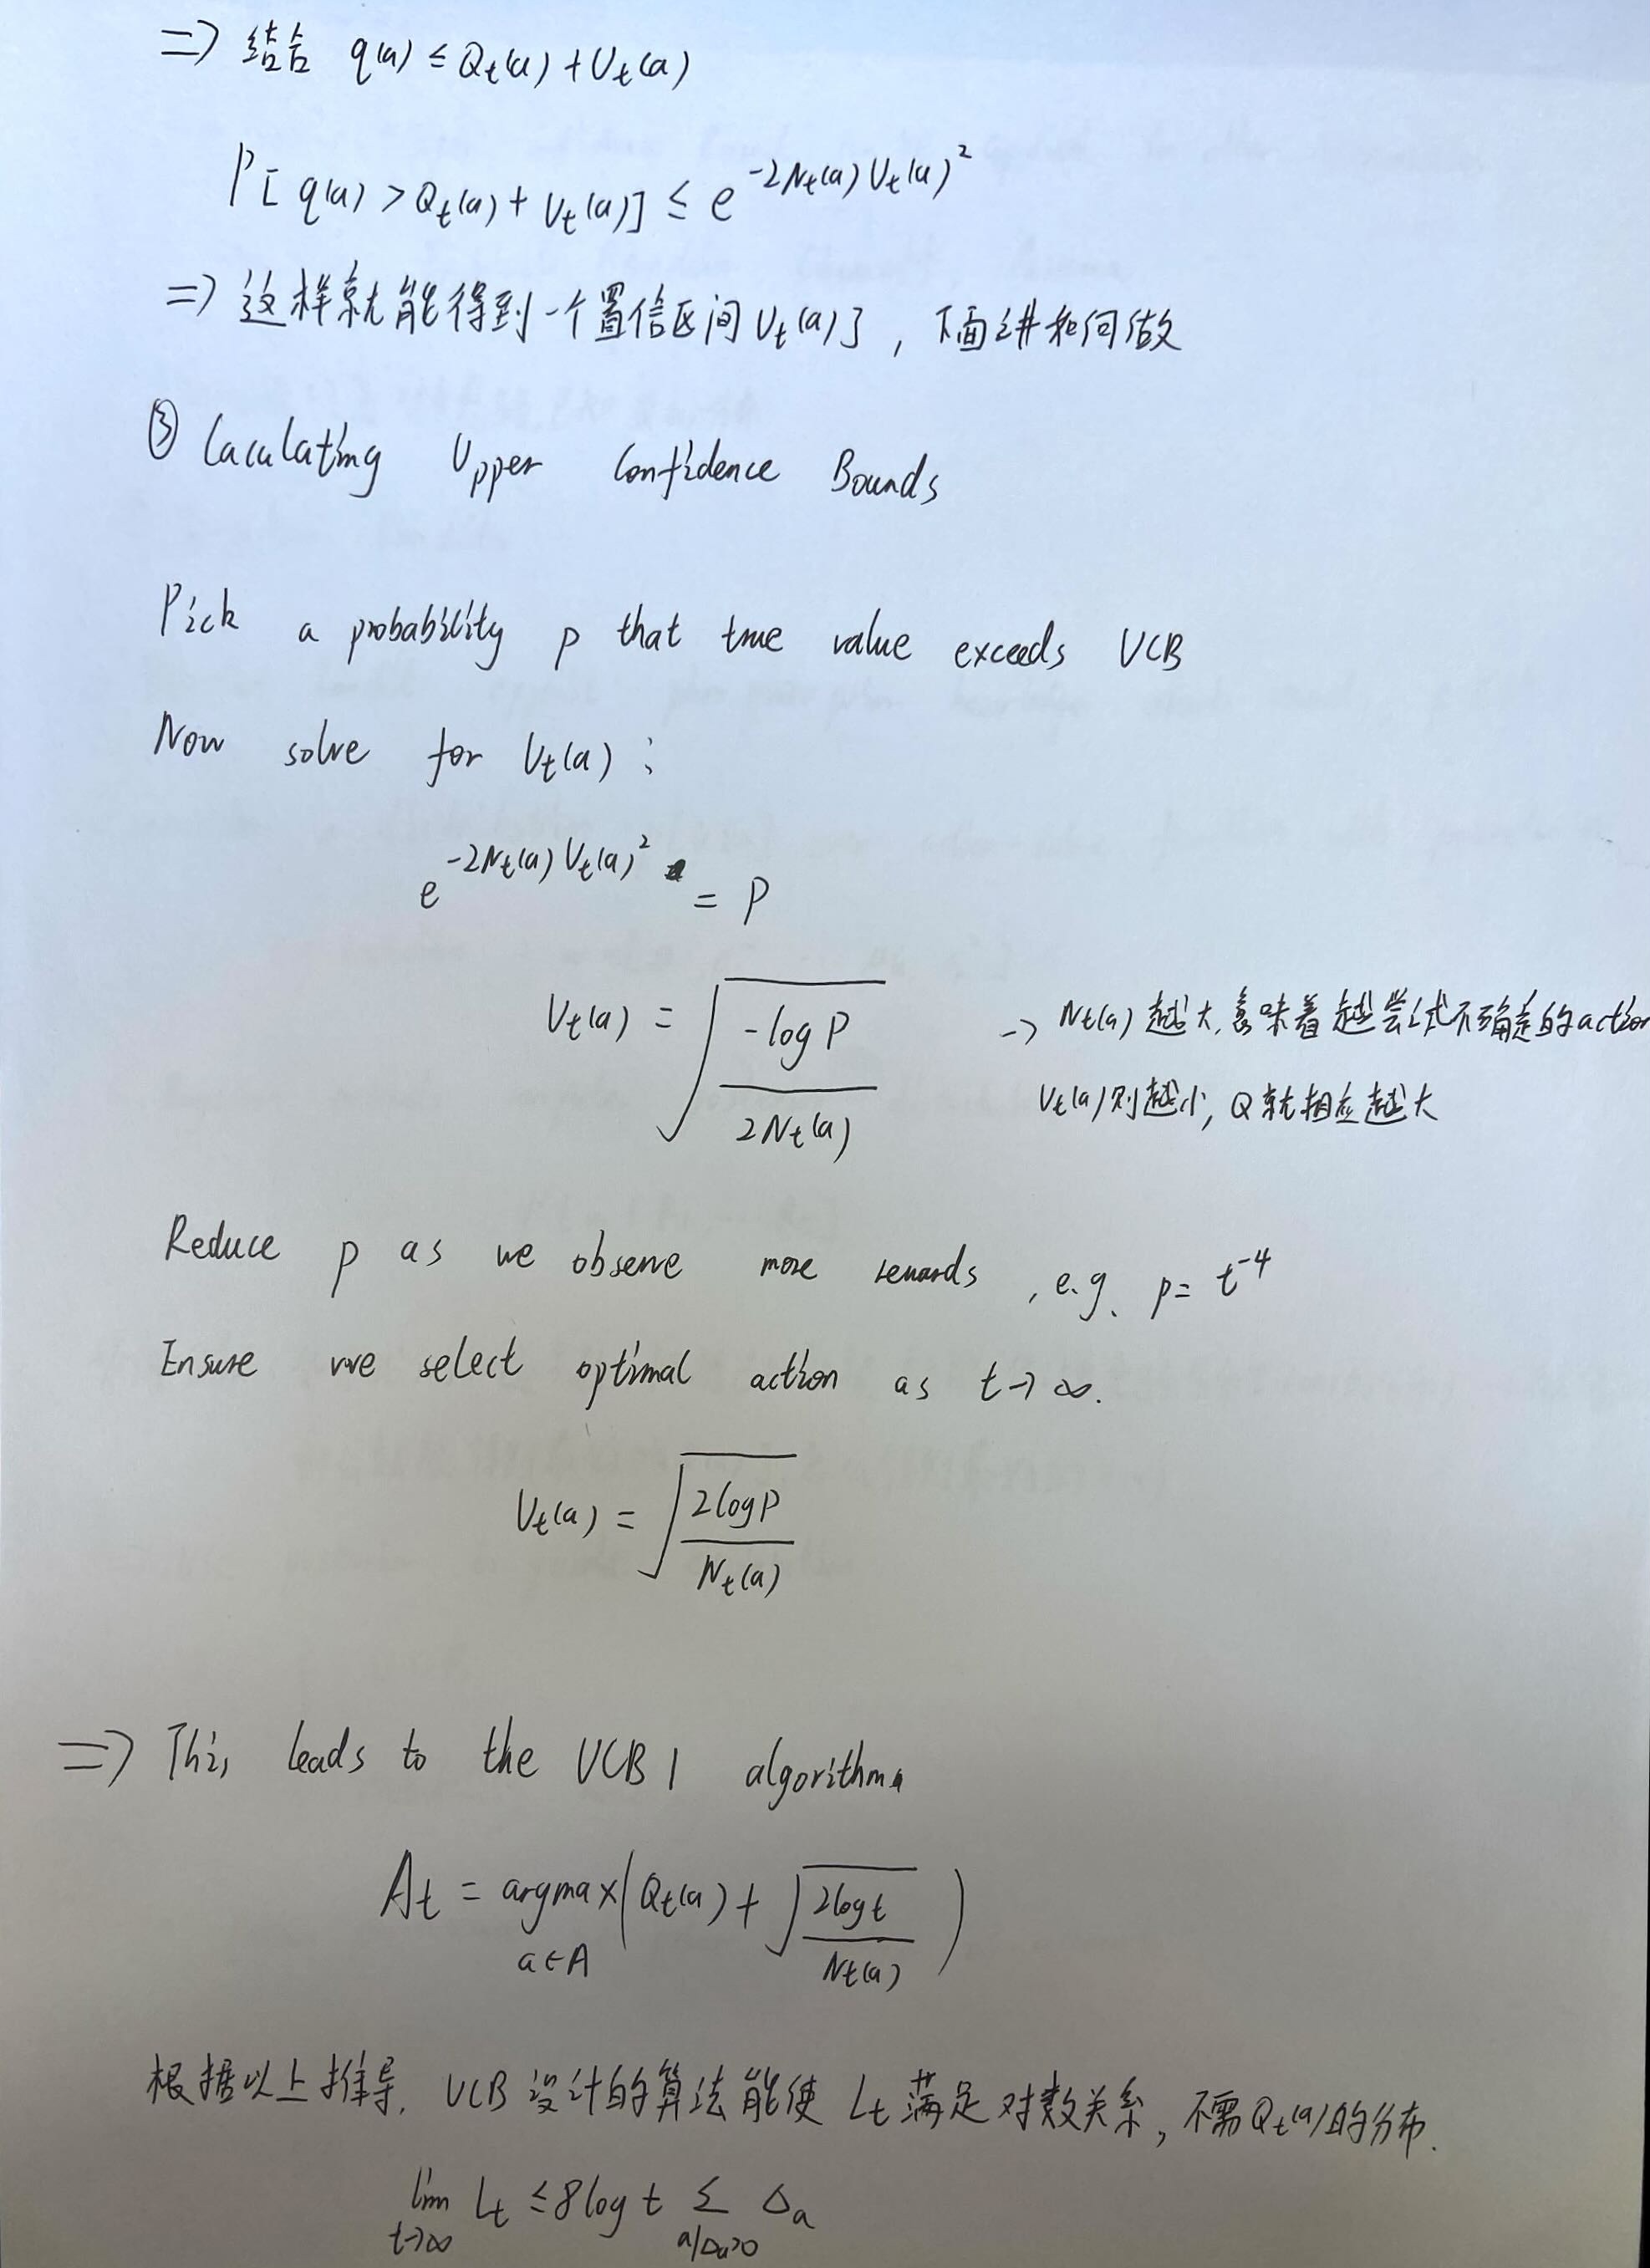 => 结合 q(a) ≤ Qt(a) + Ut(a)
P[ q(a) > Qt(a) + Ut(a)] ≤ e^{-2Nt(a) Ut(a)^2}
=> 这样就能得到一个置信区间Ut(a)], 下面讲如何做
③ Caculating Upper Confidence Bounds
Pick a probability p that true value exceeds UCB
Now solve for Ut(a) :
e^{-2Nt(a) Ut(a)^2} = P
Ut(a) = √(-log P / 2Nt(a)) -> Nt(a) 越大, 意味着越尝试不确定的action
Ut(a)则越小, Q就相应越大
Reduce p as we observe more rewards , e.g. p = t^{-4}
Ensure we select optimal action as t -> ∞.
Ut(a) = √(2logP / Nt(a))
=> This leads to the UCB1 algorithm
At = argmax a∈A (Qt(a) + √(2logt / Nt(a)))
根据以上推导, UCB设计的算法能使 Lt 满足对数关系, 不需Qt(a)的分布.
lim t->∞ Lt ≤ 8log t Σ a|Δa>0 Δa